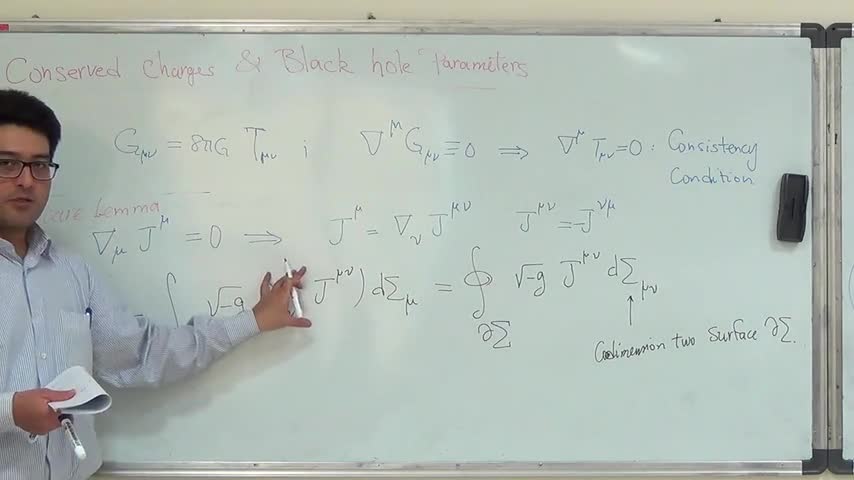 Conserved Charges & Black hole Parameters
G_μν = 8πG T_μν ; ∇^μ G_μν ≡ 0 ⇒ ∇^μ T_μν = 0 : Consistency Condition
Lemma
∇_μ J^μ = 0 ⇒ J^μ = ∇_ν J^μν J^μν = -J^νμ
= ∫ √-g J^μν) dΣ_μ = ∮_∂Σ √-g J^μν dΣ_μν
↑
Codimension two surface ∂Σ.